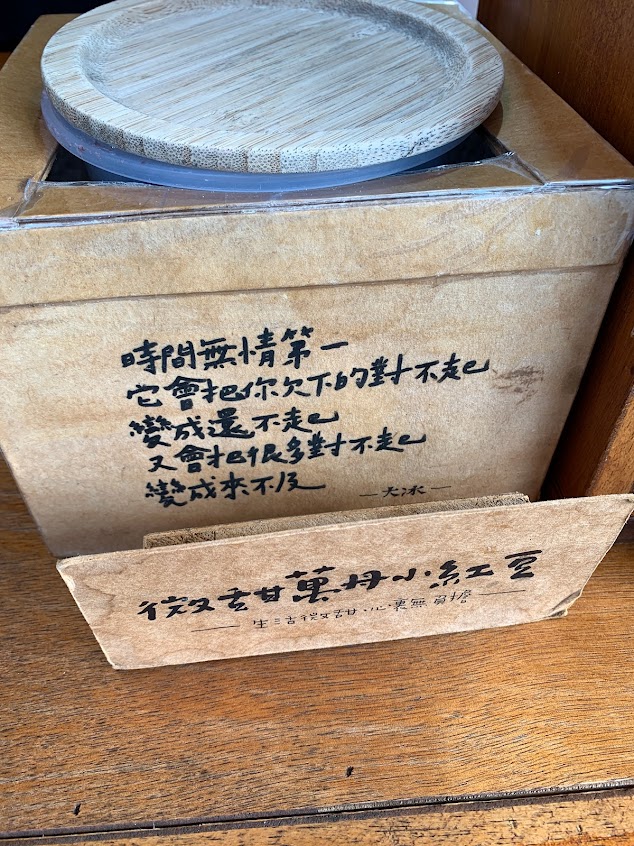 時間無情第一
它會把你欠下的對不起
變成還不起
又會把很多對不起
變成來不及
—大冰—
微甜萬丹小紅豆
—生活微甜·心裏無負評—